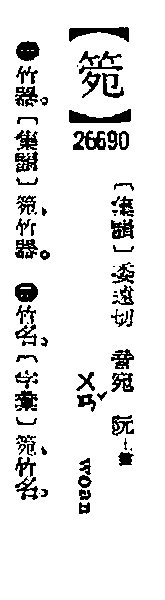 【箢】
26690
〔集韻〕委遠切 音宛 阮上聲
ㄨㄢˇ
woan
㊀竹器。〔集韻〕箢、竹器。㊁竹名。〔字彙〕箢、竹名。